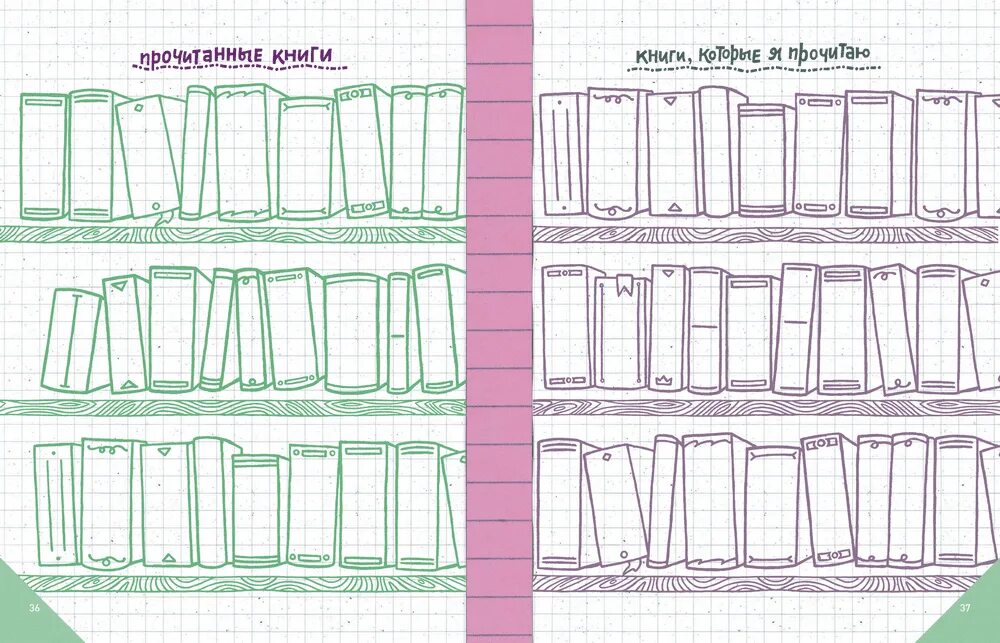 прочитанные книги
книги, которые я прочитаю
36
37